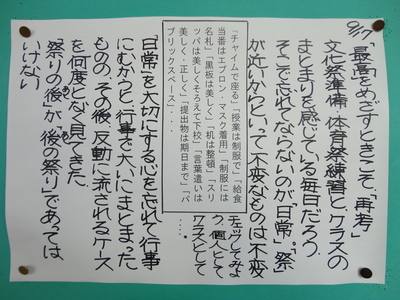 9/17
「最高をめざすときこそ、再考」
文化祭準備、体育祭練習と、クラスの
まとまりを感じている毎日だろう。
そこで忘れてならないのが「日常」。「祭」
が近いからといって不変なものは不変
「チャイムで座る」「授業は制服で」「給食
当番はエプロン、マスク着用」「制服には
名札」「黒板は美しく」「机は整頓」「スリ
ッパは美しくそろえて下校」「言葉遣いは
美しく・正しく」「提出物は期日まで」「パ
ブリックスペース・・・
チェックしてみよ
う。個人として
クラスとして
「日常」を大切にする心を忘れて行事
にむかうと、行事で大いにまとまった
ものの、その後、反動に流されるケース
を何度となく見てきた。
「祭りの後」が、「後の祭り」であっては
いけない